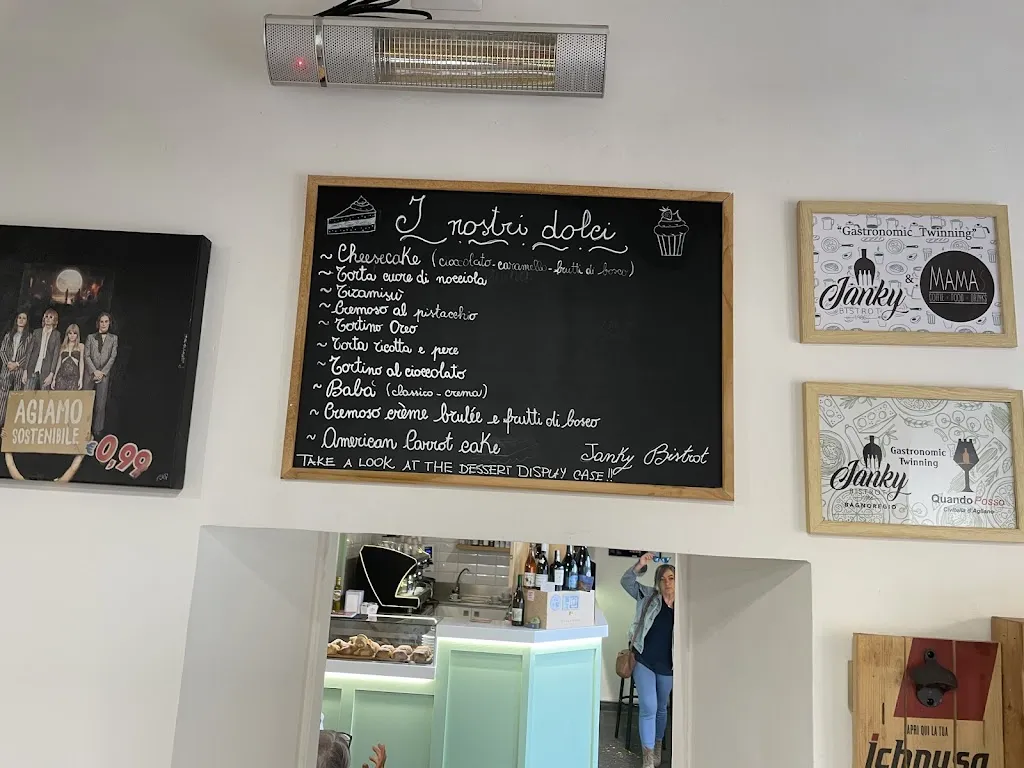 I nostri dolci
~ Cheesecake (cioccolato-caramello-frutti di bosco)
~ Torta cuore di nocciola
~ Tiramisù
~ Cremoso al pistacchio
~ Tortino Oreo
~ Torta ricotta e pere
~ Tortino al cioccolato
~ Babà (classico - crema)
~ Cremoso crème brulée e frutti di bosco
~ American Carrot cake
Janky Bistrot
TAKE A LOOK AT THE DESSERT DISPLAY CASE!!
AGIAMO
SOSTENIBILE
€0,99
"Gastronomic Twinning"
Janky
BISTROT
&
MAMA
COFFEE - FOOD - DRINKS
Janky
BISTROT
BAGNOREGIO
Gastronomic
Twinning
QuandoPosso
Civitella d'Agliano
APRI QUI LA TUA
ichnusa